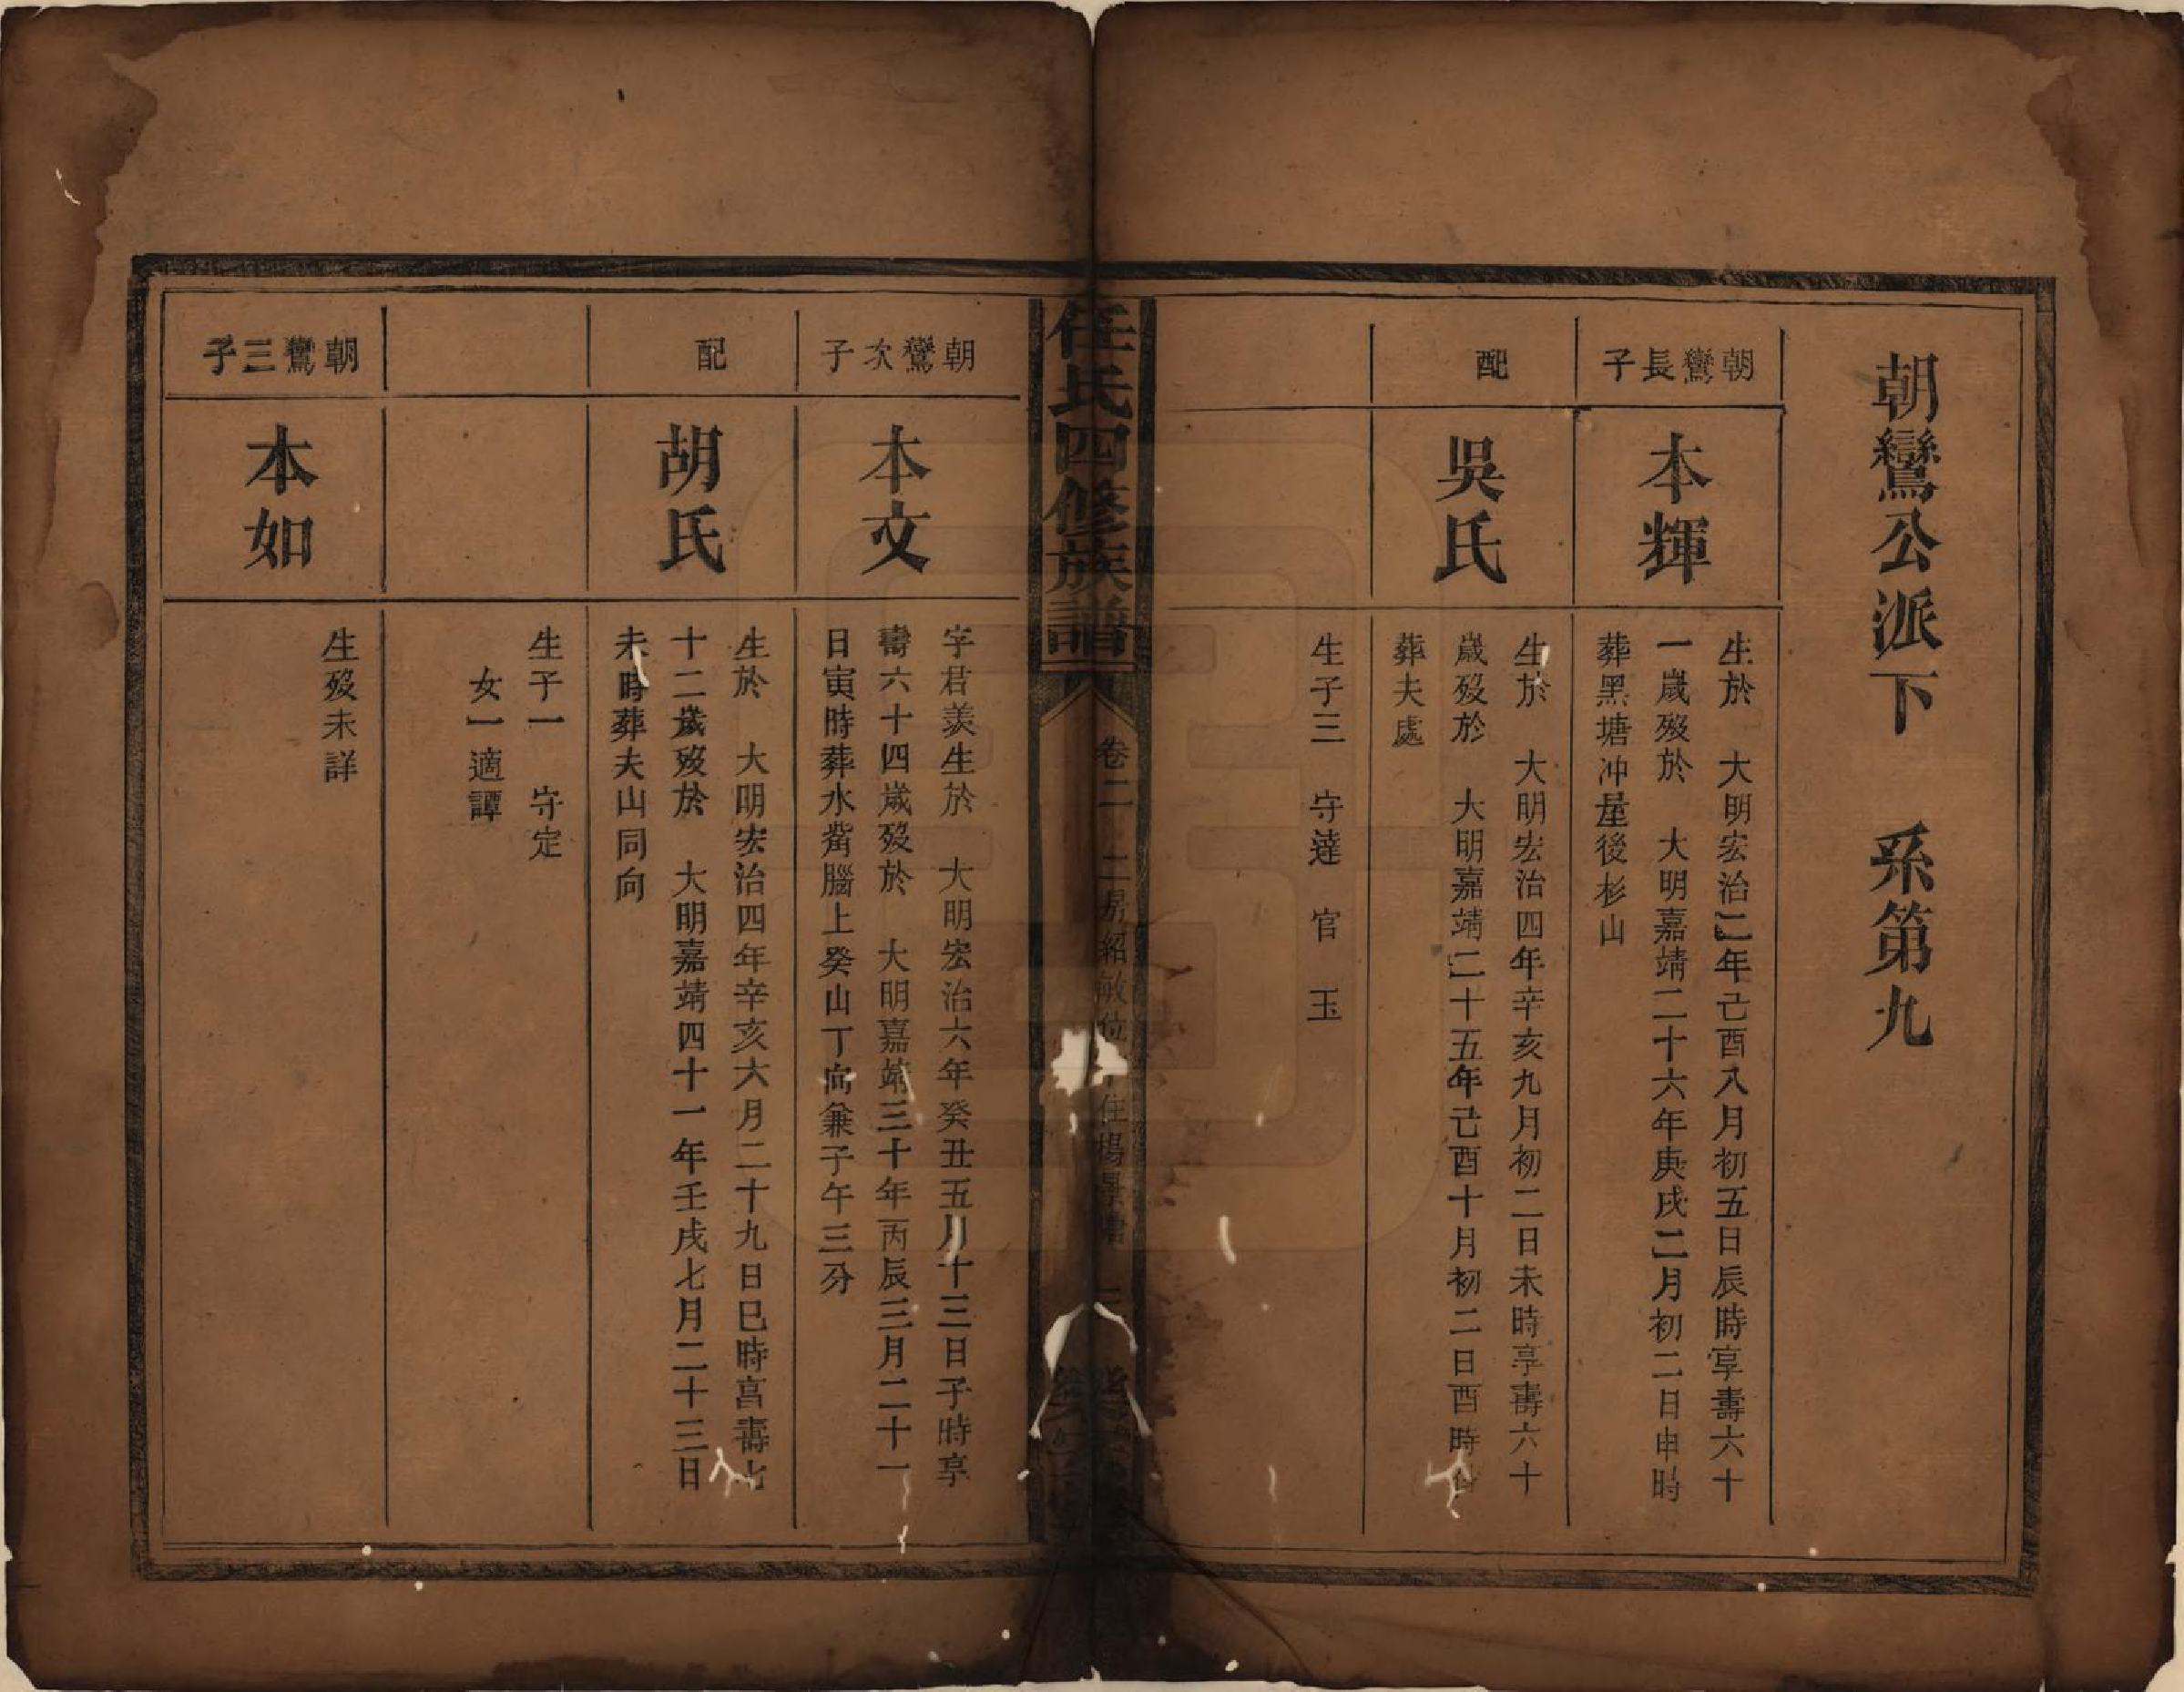 朝鸞公派下　系第九
朝鸞長子
本輝
生於　大明宏治二年己酉八月初五日辰時享壽六十
一歲歿於　大明嘉靖二十六年庚戌二月初二日申時
葬黑塘冲屋後杉山
配
吳氏
生於　大明宏治四年辛亥九月初二日未時享壽六十
歲歿於　大明嘉靖二十五年己酉十月初二日酉時
葬夫處
生子三　守達　官　玉
任氏四修族譜
卷二
朝鸞次子
本文
字君羨生於　大明宏治六年癸丑五月十三日子時享
壽六十四歲歿於　大明嘉靖三十年丙辰三月二十一
日寅時葬水觜腦上癸山丁向兼子午三分
配
胡氏
生於　大明宏治四年辛亥六月二十九日巳時享壽七
十二歲歿於　大明嘉靖四十一年壬戌七月二十三日
未時葬夫山同向
生子一　守定
女一適譚
朝鸞三子
本如
生歿未詳